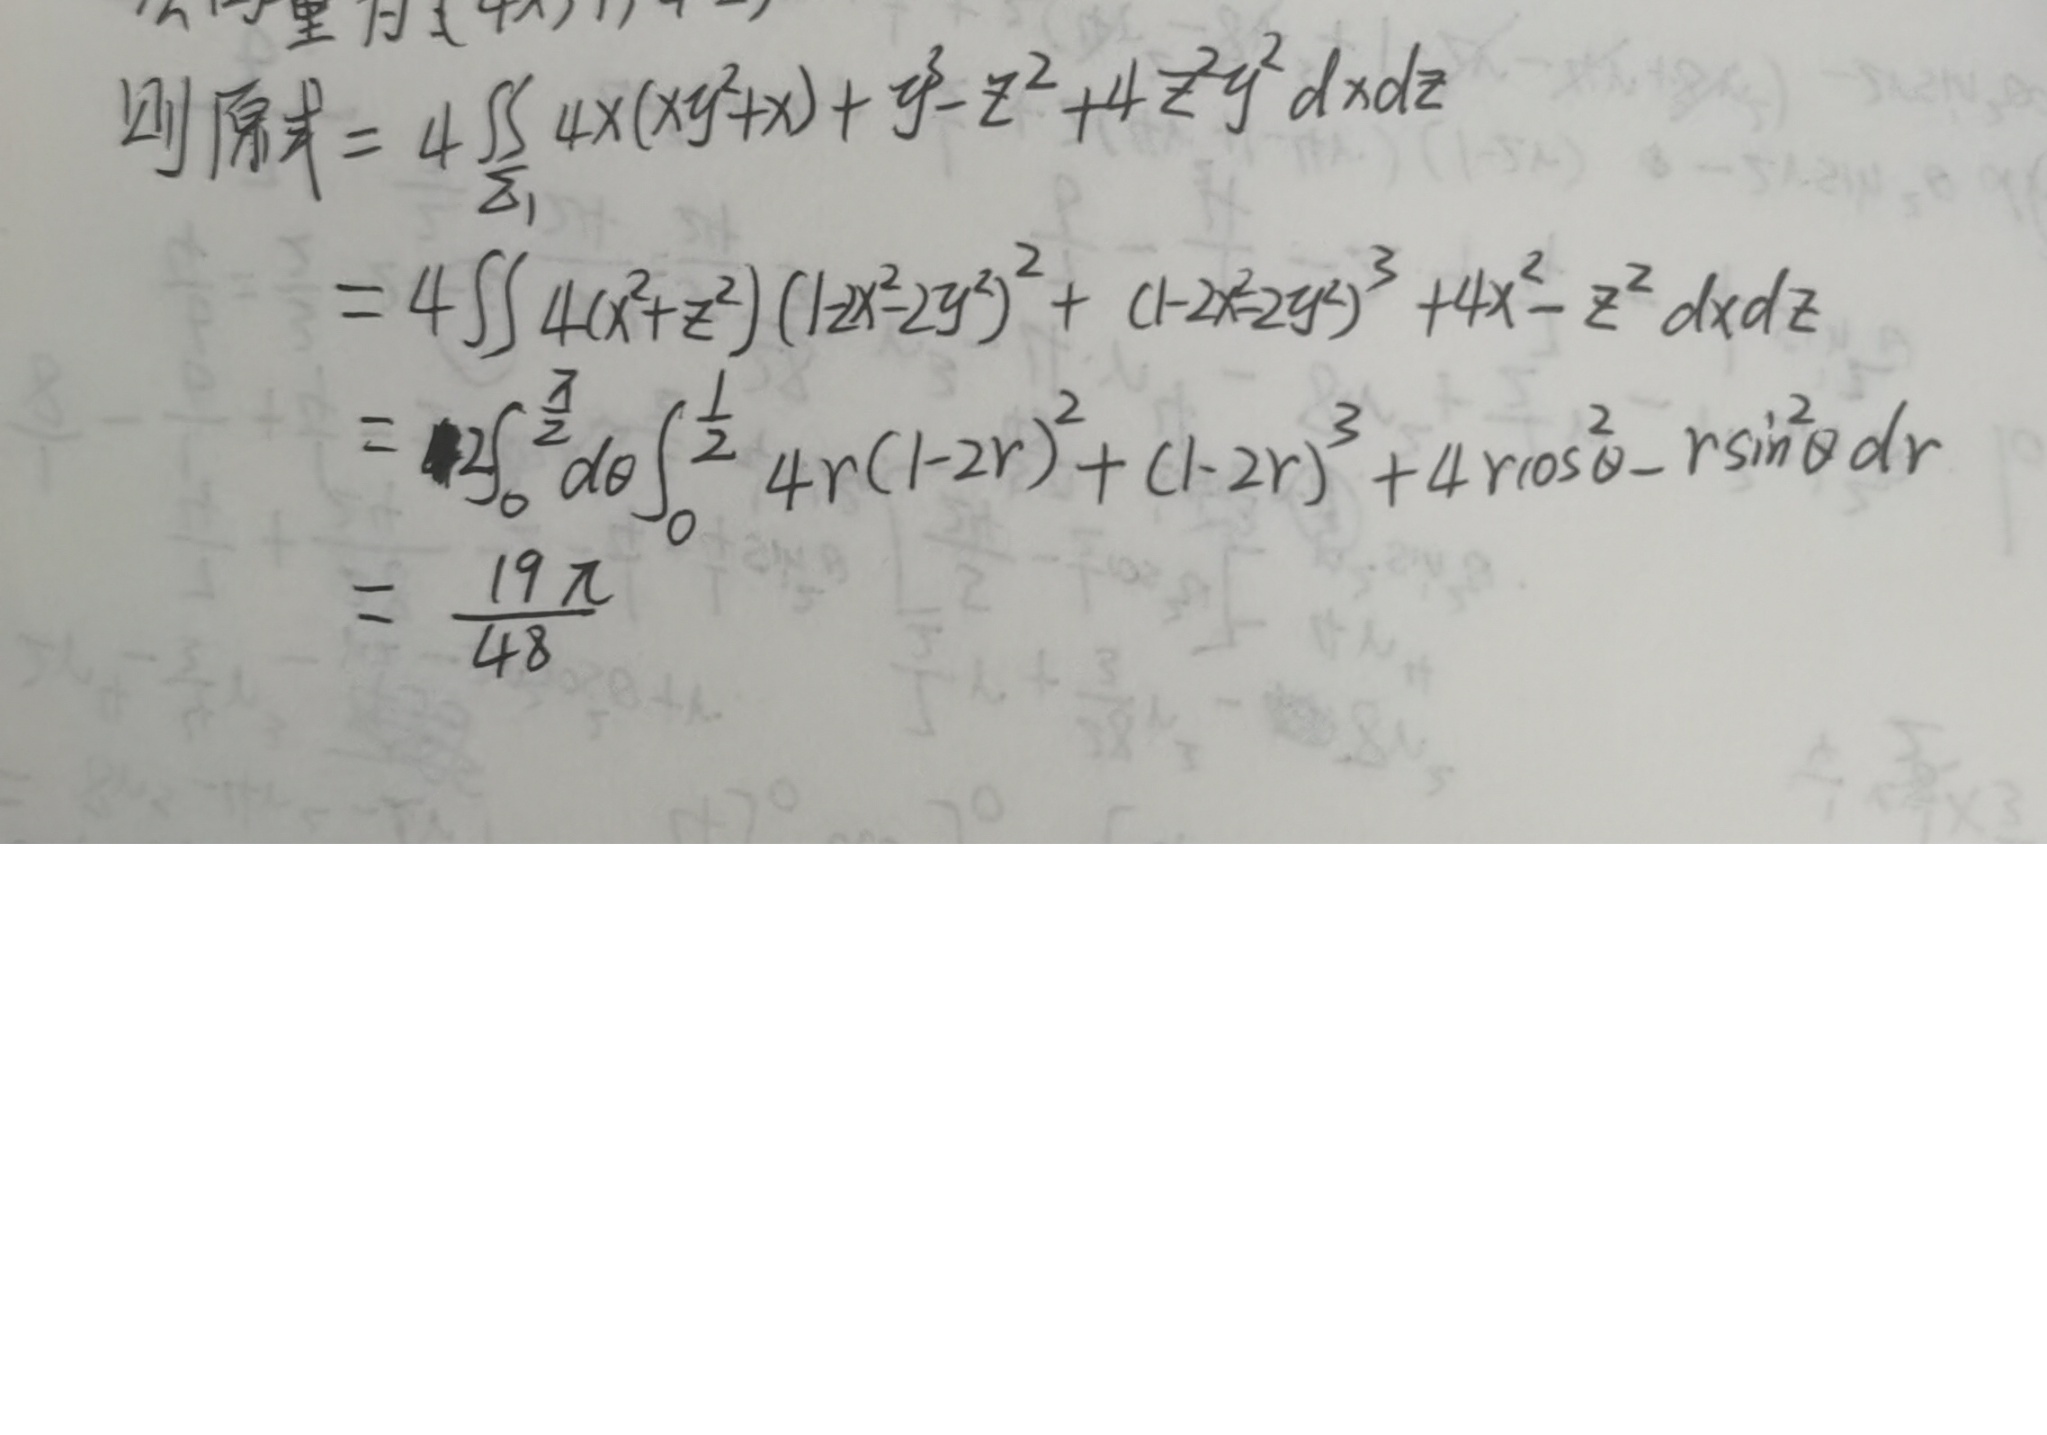 量有{4x, 1, 4z}
则原式 = 4∬_{Σ₁} 4x(xy²+x) + y³ - z² + 4z²y² dxdz
= 4∬ 4(x²+z²)(1-2x²-2y²)² + (1-2x²-2y²)³ + 4x² - z² dxdz
= 2∫₀^{π/2} dθ ∫₀^{1/2} 4r(1-2r)² + (1-2r)³ + 4rcos²θ - rsin²θ dr
= 19π/48